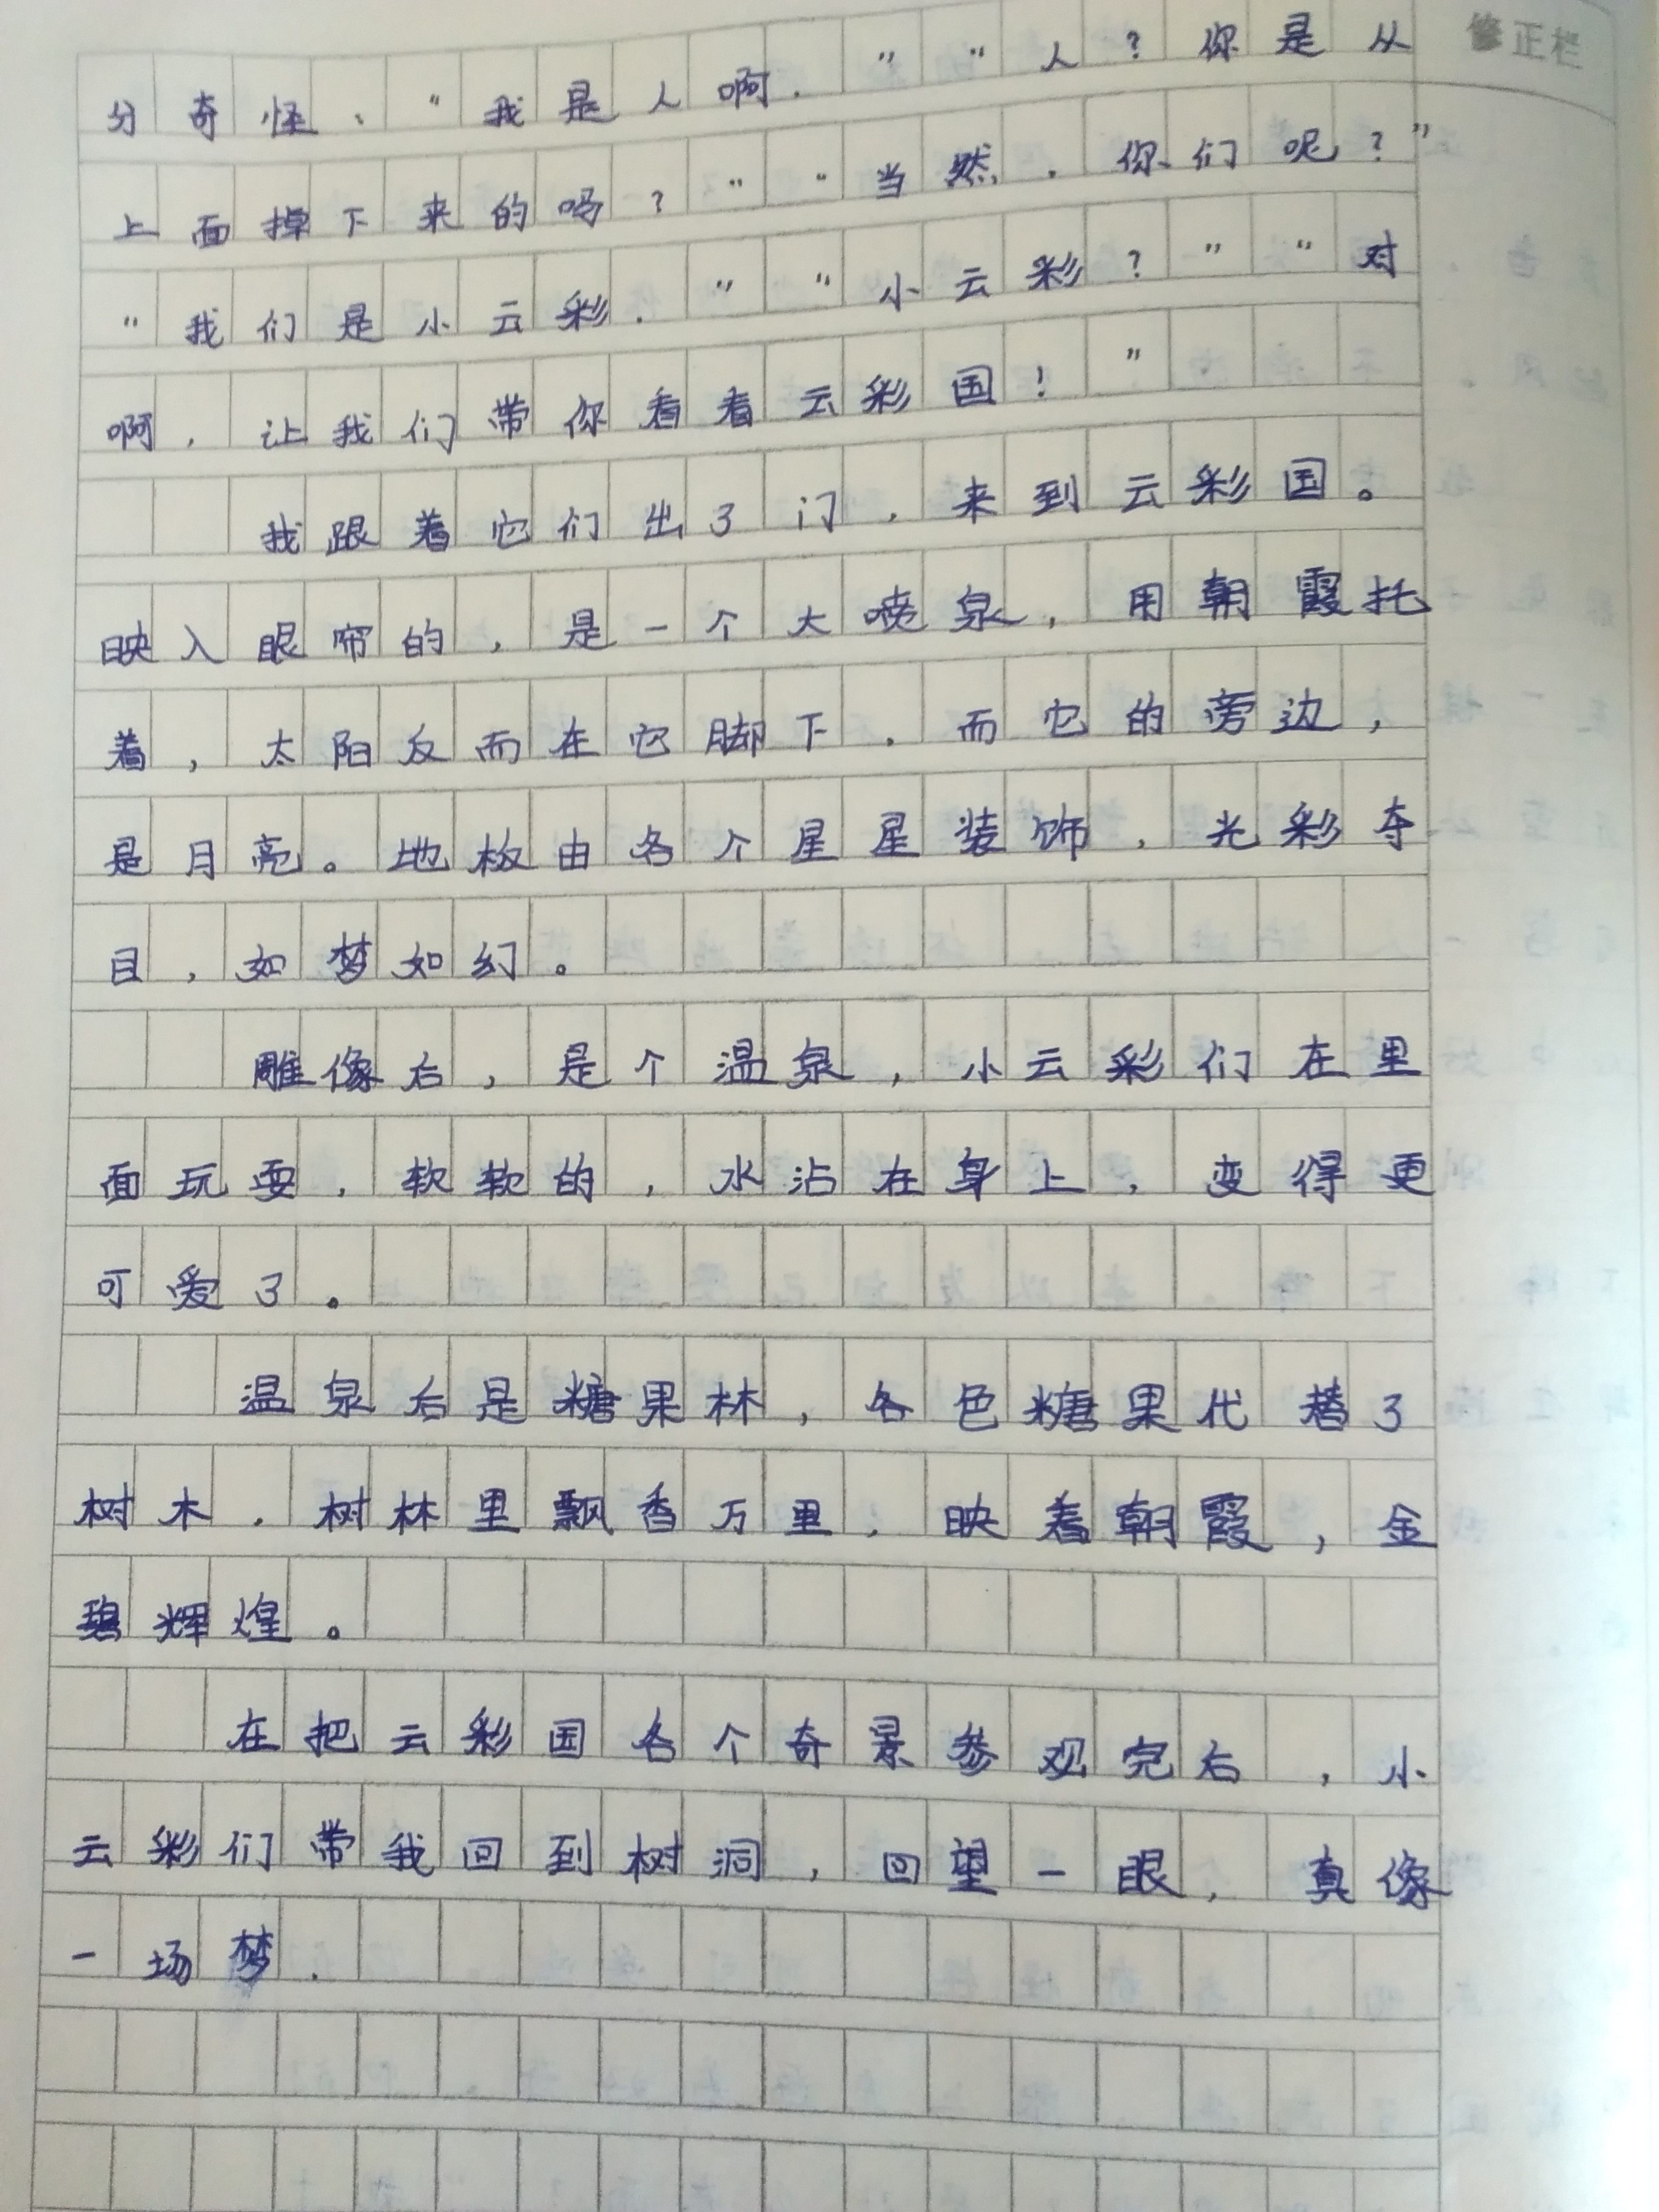 修正栏
分奇怪、“我是人啊.”“人?你是从
上面掉下来的吗?”“当然,你们呢?”
“我们是小云彩.”“小云彩?”“对
啊,让我们带你看看云彩国!”
我跟着它们出了门,来到云彩国。
映入眼帘的,是一个大喷泉,用朝霞托
着,太阳反而在它脚下,而它的旁边,
是月亮。地板由各个星星装饰,光彩夺
目,如梦如幻。
雕像后,是个温泉,小云彩们在里
面玩耍,软软的,水沾在身上,变得更
可爱了。
温泉后是糖果林,各色糖果代替了
树木,树林里飘香万里,映着朝霞,金
碧辉煌。
在把云彩国各个奇景参观完后,小
云彩们带我回到树洞,回望一眼,真像
一场梦.